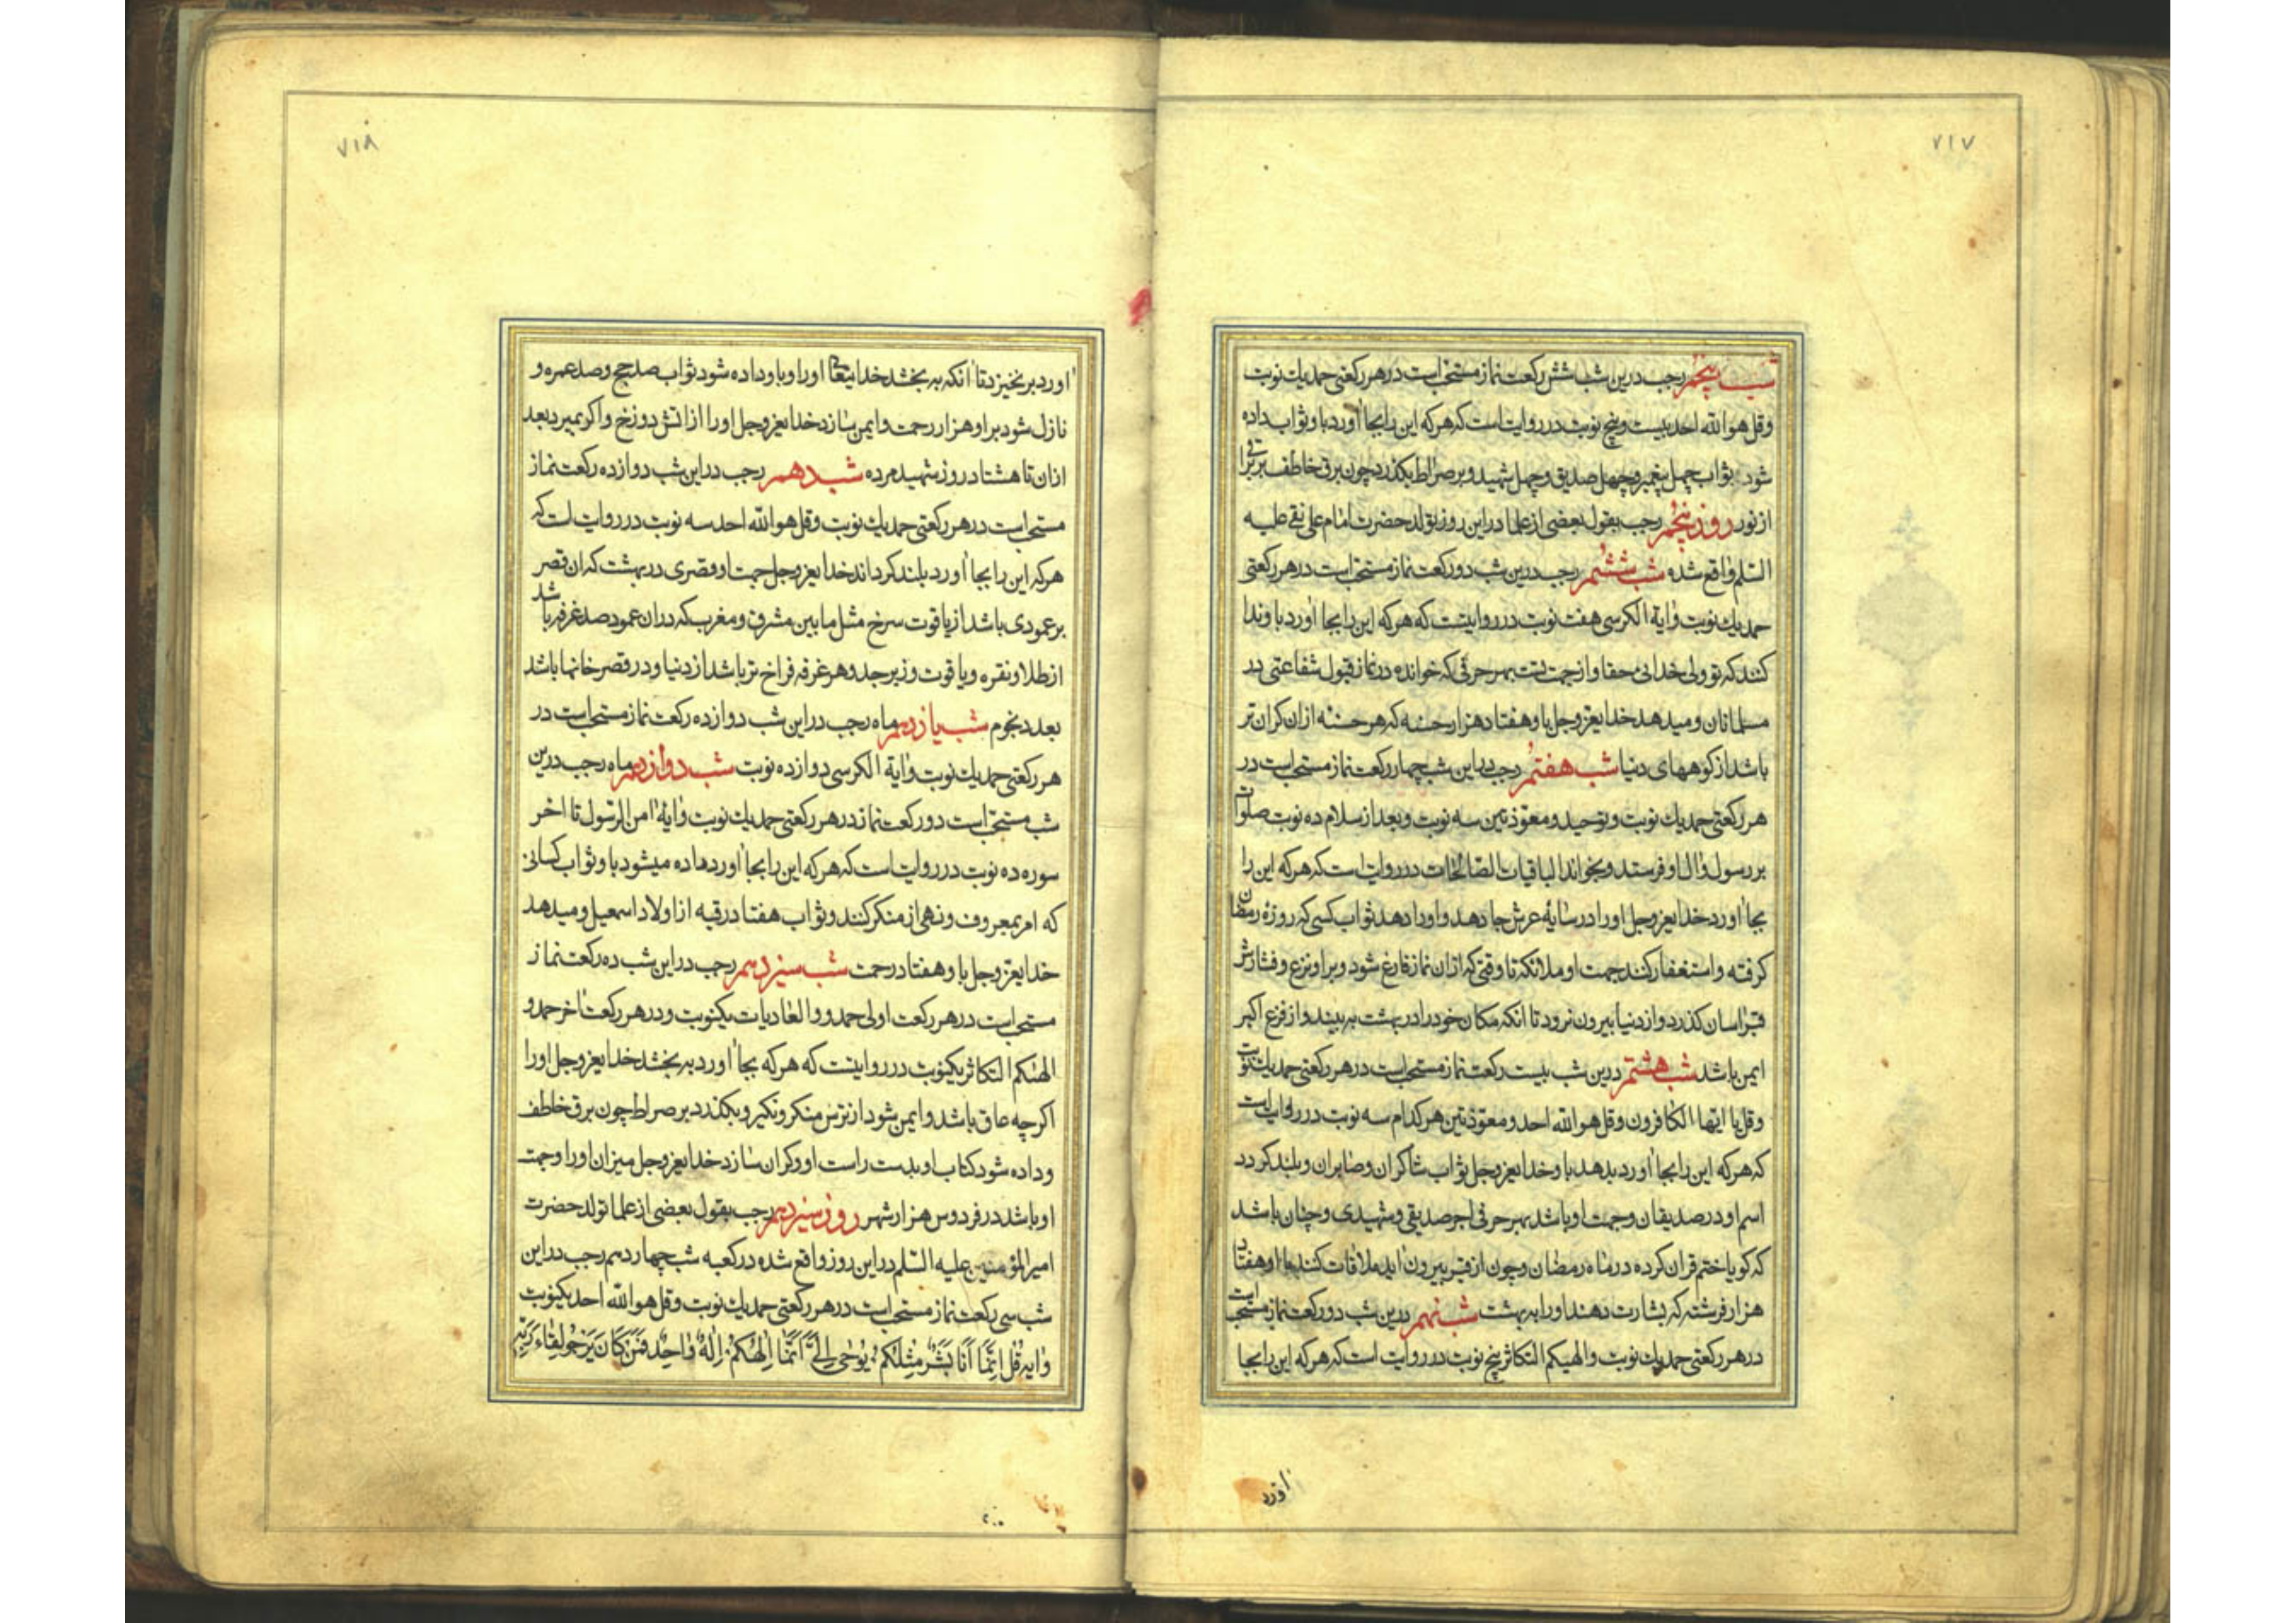 ۷۱۷
شب پنجم رجب درین شب شش رکعت نماز مستحبّ است در هر رکعتی حمد یك نوبت
وقل هو اللّه احد بیست وپنج نوبت در روایت است که هرکه این را بجا اورد باو ثواب داده
شود ثواب چهل پیغمبر وچهل صدیق وچهل شهید وبر صراط بکذرد چون برق خاطف بر
از نور روز پنجم رجب بقول بعضی از علما در این روز تولد حضرت امام علی نقی علیه
السّلم واقع شده شب ششم رجب درین شب دو رکعت نماز مستحبّ است در هر رکعتی
حمد یك نوبت وایة الکرسی هفت نوبت در روایتست که هرکه این را بجا اورد باو ندا
کنند که تو ولی خدائی حقا واز جهت تست بهر حرفی که خوانده در نماز قبول شفاعتی در
مسلمانان ومیدهد خدایعزوجل باو هفتاد هزار حسنه که هر حسنه ازان کران تر
باشد از کوههای دنیا شب هفتم رجب در این شب چهار رکعت نماز مستحب است در
هر رکعتی حمد یك نوبت وتوحید ومعوّذتین سه نوبت وبعد از سلام ده نوبت صلوات
بر رسول وال او فرستد وبخواند الباقیات الصّالحات در روایت است که هرکه این را
بجا اورد خدایعزوجل اورا در سایهٔ عرش جا دهد واورا دهد ثواب کسی که روزه رمضان
کرفته واستغفار کنند جهت او ملائکه تا وقتی که ازان نماز فارغ شود وبر او نزع وفشارش
قبر اسان کذرد واز دنیا بیرون نرود تا انکه مکان خود را در بهشت به بیند واز فزع اکبر
ایمن باشد شب هشتم درین شب بیست رکعت نماز مستحب است در هر رکعتی حمد یك نوبت
وقل یا ایّها الکافرون وقل هو اللّه احد ومعوّذتین هرکدام سه نوبت در روایت است
که هرکه این را بجا اورد بدهد باو خدایعزوجل ثواب شاکران وصابران وبلند کردد
اسم او در صدیقان وجهت او باشد بهر حرفی اجر صدیقی وشهیدی وچنان باشد
که کویا ختم قران کرده در ماه رمضان وچون از قبر بیرون اید ملاقات کنند با او هفتاد
هزار فرشته که بشارت دهند اورا به بهشت شب نهم درین شب دو رکعت نماز مستحب است
در هر رکعتی حمد یك نوبت والهیکم التکاثر پنج نوبت در روایت است که هرکه این را بجا
اورد
۷۱۸
اورد بر نخیزد تا انکه به بخشد خدایتعا اورا وباو داده شود ثواب صد حج وصد عمره و
نازل شود بر او هزار رحمت وایمن سازد خدایعزوجل اورا از اتش دوزخ واکر بمیرد بعد
ازان تا هشتاد روز شهید مرده شب دهم رجب در این شب دوازده رکعت نماز
مستحب است در هر رکعتی حمد یك نوبت وقل هو اللّه احد سه نوبت در روایت است که
هرکه این را بجا اورد بلند کرداند خدایعزوجل جهت او قصری در بهشت که ان قصر
بر عمودی باشد از یاقوت سرخ مثل ما بین مشرق ومغرب که دران عمود صد غرفه باشد
از طلا ونقره ویاقوت وزبرجد وهر غرفه فراخ تر باشد از دنیا ودر قصر خانها باشد
بعدد نجوم شب یازدهم ماه رجب در این شب دوازده رکعت نماز مستحب است در
هر رکعتی حمد یك نوبت وایة الکرسی دوازده نوبت شب دوازدهم ماه رجب درین
شب مستحبّ است دو رکعت نماز در هر رکعتی حمد یك نوبت وایهٔ امن الرّسول تا اخر
سوره ده نوبت در روایت است که هرکه این را بجا اورد داده میشود باو ثواب کسانی
که امر بمعروف ونهی از منکر کنند وثواب هفتاد رقبه از اولاد اسمعیل ومیدهد
خدایعزوجل باو هفتاد رحمت شب سیزدهم رجب در این شب ده رکعت نماز
مستحب است در هر رکعت اولی حمد ووالعادیات یکنوبت ودر هر رکعت اخر حمد و
الهٰکم التکاثر یکنوبت در روایتست که هرکه بجا اورد به بخشد خدایعزوجل اورا
اکرچه عاق باشد وایمن شود از ترس منکر ونکیر وبکذرد بر صراط چون برق خاطف
وداده شود کتاب او بدست راست او وکران سازد خدایعزوجل میزان اورا وجهت
او باشد در فردوس هزار شهر روز سیزدهم رجب بقول بعضی از علما تولد حضرت
امیر المؤمنین علیه السّلم در این روز واقع شده در کعبه شب چهاردهم رجب در این
شب سی رکعت نماز مستحب است در هر رکعتی حمد یك نوبت وقل هو اللّه احد یکنوبت
وایه قُل اِنَّمَا اَنَا بَشَرٌ مِثْلُکُمْ یُوحٰی اِلَیَّ اَنَّمَا اِلٰهُکُمْ اِلٰهٌ وَاحِدٌ فَمَنْ کَانَ یَرْجُو لِقَاءَ رَبِّهِ